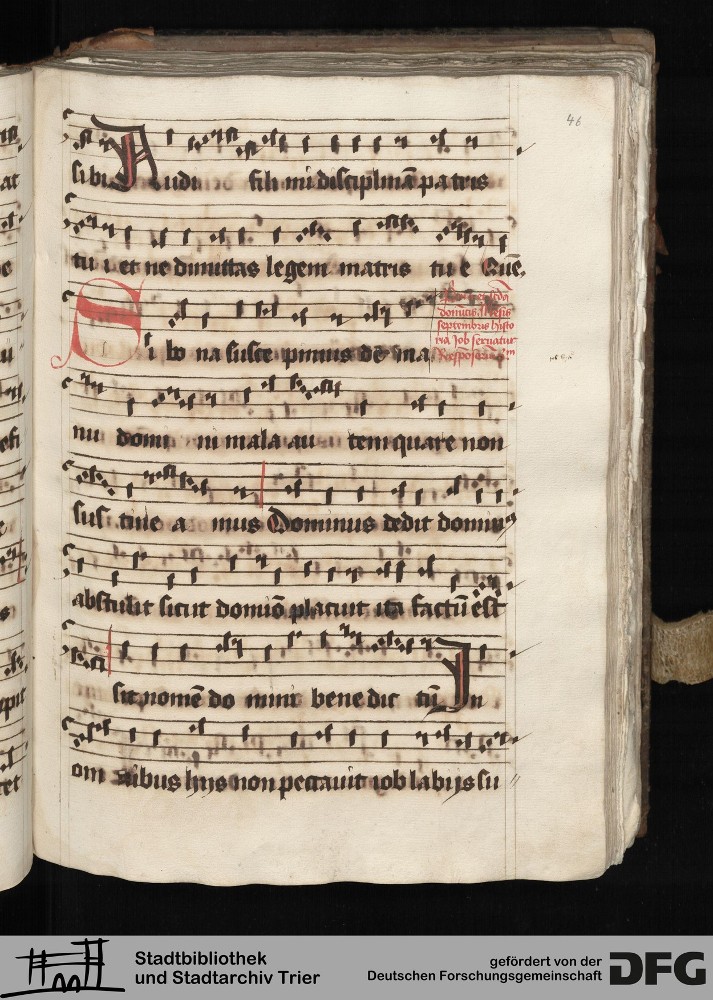 46
sibi Audi fili mi disciplinā patris
tui et ne dimittas legem matris tue Quē.
domīcis
septembris histo
ria Job seruatur
Si bona suscepimus dē ma
nu domini mala autem quare non
sustineamus Dominus dedit dominꝰ
abstulit sicut domīo placuit ita factū est
sit nomē domini benedictū In
omnibus hijs non peccauit iob labijs su
Stadtbibliothek
und Stadtarchiv Trier
gefördert von der
Deutschen Forschungsgemeinschaft
DFG